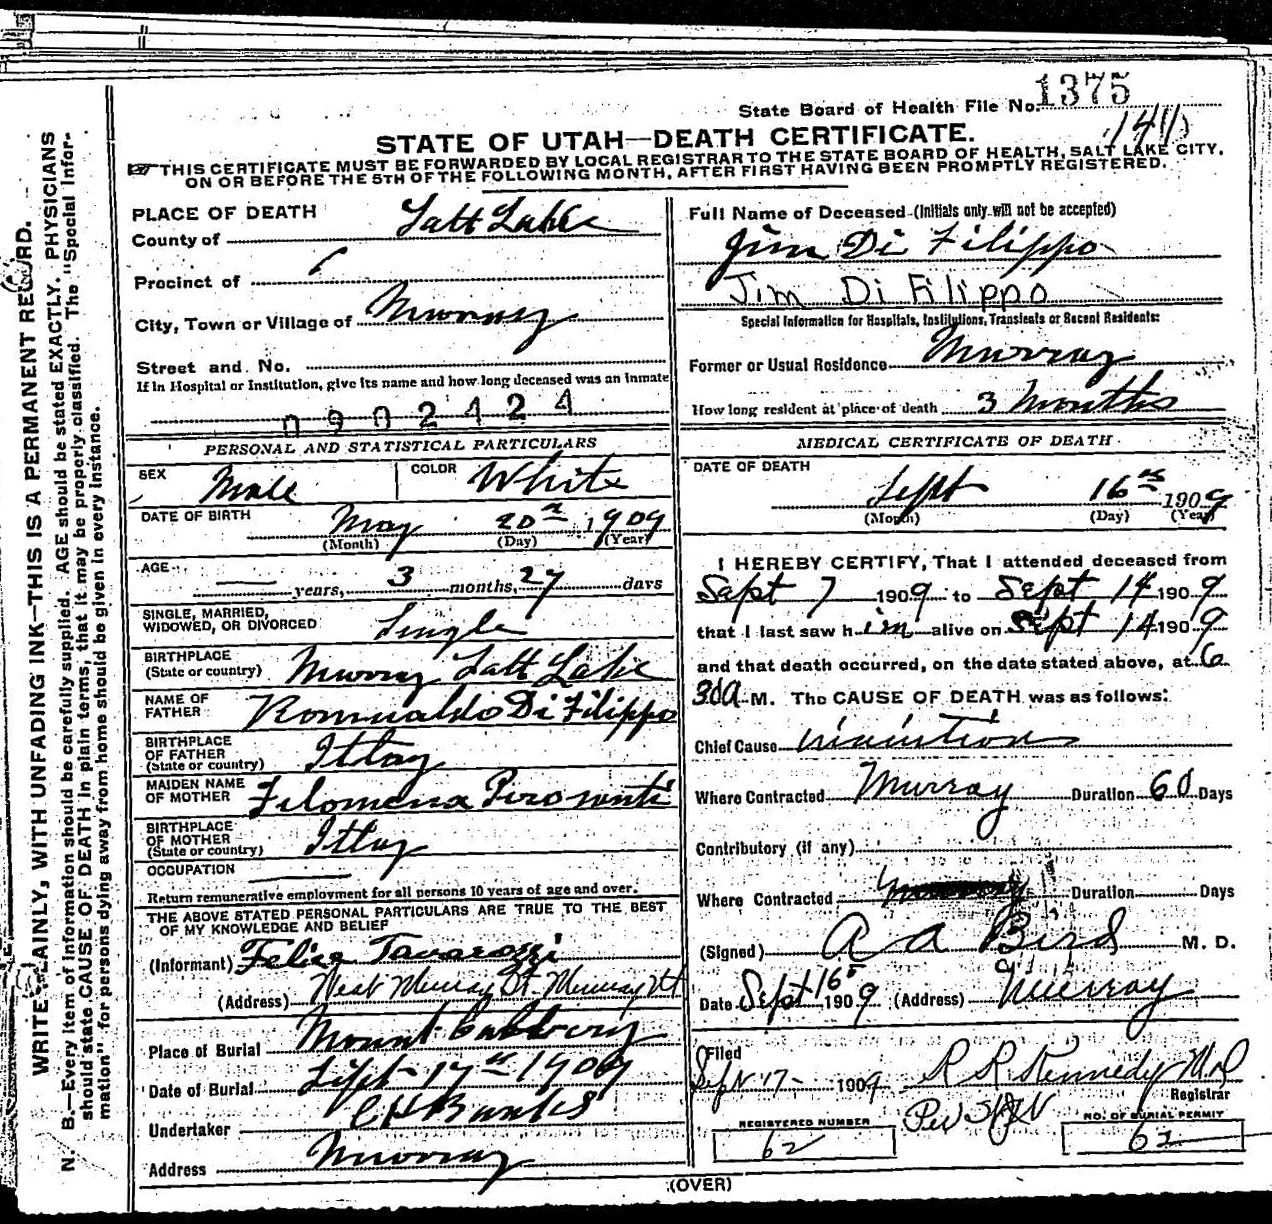 State Board of Health File No. 1375
1411
STATE OF UTAH—DEATH CERTIFICATE.
THIS CERTIFICATE MUST BE FORWARDED BY LOCAL REGISTRAR TO THE STATE BOARD OF HEALTH, SALT LAKE CITY,
ON OR BEFORE THE 5TH OF THE FOLLOWING MONTH, AFTER FIRST HAVING BEEN PROMPTLY REGISTERED.
WRITE PLAINLY, WITH UNFADING INK—THIS IS A PERMANENT RECORD.
N. B.—Every item of information should be carefully supplied. AGE should be stated EXACTLY. PHYSICIANS
should state CAUSE OF DEATH in plain terms, that it may be properly classified. The "Special Infor-
mation" for persons dying away from home should be given in every instance.
PLACE OF DEATH
County of Salt Lake
Precinct of
City, Town or Village of Murray
Street and No.
If in Hospital or Institution, give its name and how long deceased was an inmate
0902424
PERSONAL AND STATISTICAL PARTICULARS
SEX Male COLOR White
DATE OF BIRTH May 20 1909
(Month) (Day) (Year)
AGE — years, 3 months, 27 days
SINGLE, MARRIED,
WIDOWED, OR DIVORCED Single
BIRTHPLACE
(State or country) Murray Salt Lake
NAME OF
FATHER Romualdo Di Filippo
BIRTHPLACE
OF FATHER
(State or country) Itlay
MAIDEN NAME
OF MOTHER Filomena
BIRTHPLACE
OF MOTHER
(State or country) Itlay
OCCUPATION
Return remunerative employment for all persons 10 years of age and over.
THE ABOVE STATED PERSONAL PARTICULARS ARE TRUE TO THE BEST
OF MY KNOWLEDGE AND BELIEF
(Informant) Felice
(Address) West Murray St. Murray Ut
Place of Burial Mount
Date of Burial Sept 17 1909
Undertaker C H Banks
Address Murray
Full Name of Deceased (Initials only will not be accepted)
Jim Di Filippo
Jim Di Filippo
Special Information for Hospitals, Institutions, Transients or Recent Residents:
Former or Usual Residence Murray
How long resident at place of death 3 Months
MEDICAL CERTIFICATE OF DEATH
DATE OF DEATH
Sept 16 1909
(Month) (Day) (Year)
I HEREBY CERTIFY, That I attended deceased from
Sept 7 1909 to Sept 14 1909
that I last saw him alive on Sept 14 1909
and that death occurred, on the date stated above, at 6
30 a M. The CAUSE OF DEATH was as follows:
Chief Cause inanition
Where Contracted Murray Duration 60 Days
Contributory (if any)
Where Contracted Duration Days
(Signed) A A Bird M. D.
Date Sept 16 1909 (Address) Murray
Filed
Sept 17- 1909 R R Kennedy M D
Registrar
Per
REGISTERED NUMBER
62
NO. OF BURIAL PERMIT
62
(OVER)